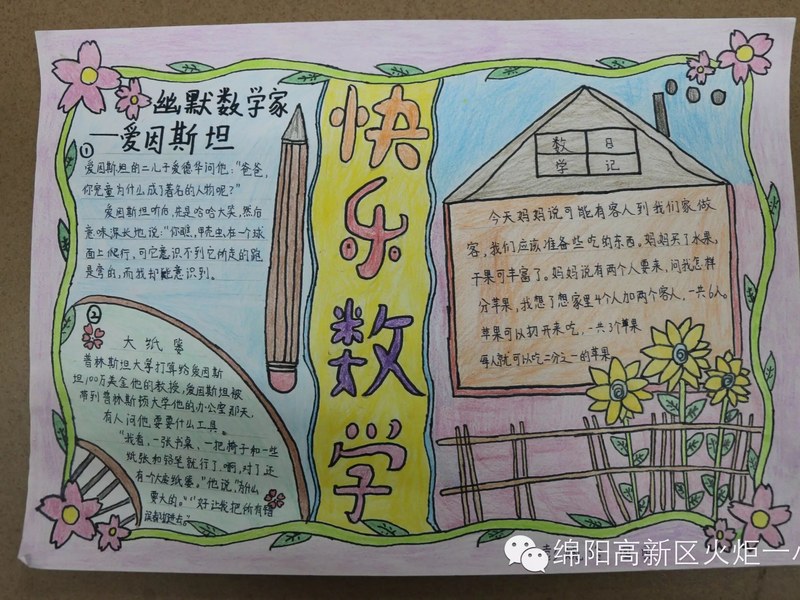 幽默数学家
—爱因斯坦
①
爱因斯坦的二儿子爱德华问他:"爸爸,
你究竟为什么成了著名的人物呢?"
爱因斯坦听后,先是哈哈大笑,然后
意味深长地说:"你瞧,甲壳虫在一个球
面上爬行,可它意识不到它所走的路
是弯的,而我却能意识到。
②
大纸篓
普林斯坦大学打算给爱因斯
坦100万美金他的教授,爱因斯坦被
带到普林斯顿大学他的办公室那天,
有人问他要要什么工具。
"我看,一张书桌、一把椅子和一些
纸张和铅笔就行了,啊,对了还
有一个大废纸篓。"他说,"为什么
要大的。""好让我把所有错
误都
快乐数学
数学日记
今天妈妈说可能有客人到我们家做
客,我们应该准备些吃的东西。妈妈买了水果,
干果可丰富了。妈妈说有两个人要来,问我怎样
分苹果,我想了想家里4个人加两个客人,一共6人。
苹果可以切开来吃,一共3个苹果
每人就可以吃二分之一的苹果
绵阳高新区火炬一小